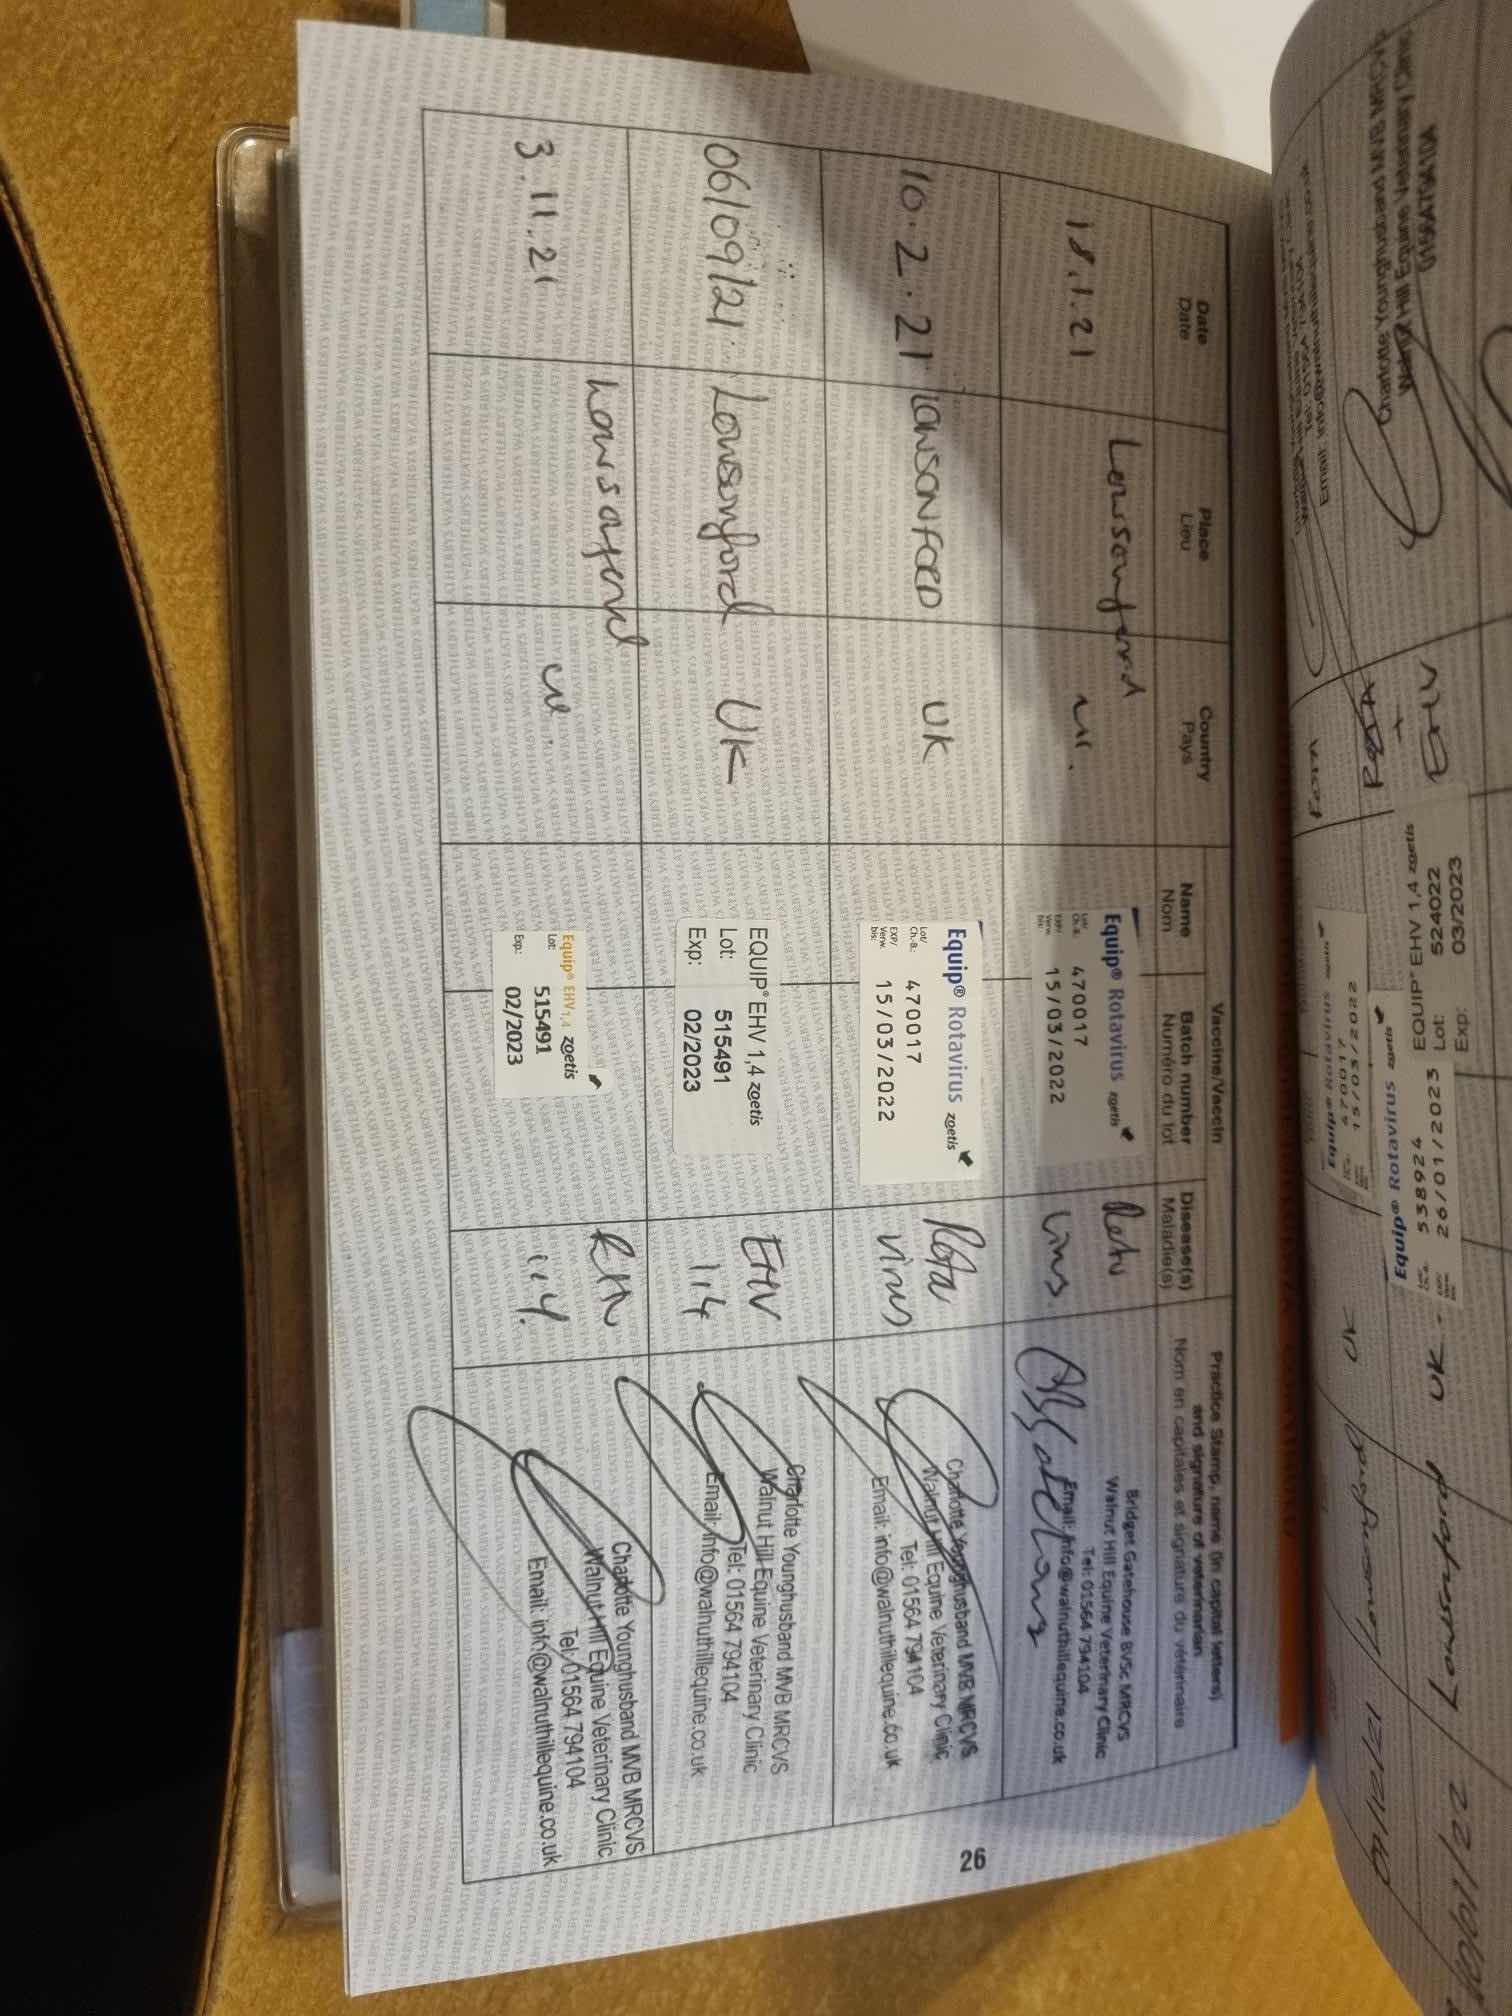 Date
Date
Place
Lieu
Country
Pays
Vaccine/Vaccin
Name
Nom
Batch number
Numéro du lot
Disease(s)
Maladie(s)
Practice Stamp, name (in capital letters)
and signature of veterinarian
Nom en capitales et signature du vétérinaire
18.1.21
Lowsonford
UK.
Equip® Rotavirus zoetis
Lot/
Ch.-B.: 470017
EXP/
Verw. 15/03/2022
bis:
Rota
virus.
Bridget Gatehouse BVSc MRCVS
Walnut Hill Equine Veterinary Clinic
Tel: 01564 794104
Email: info@walnuthillequine.co.uk
10.2.21
LOWSONFORD
UK
Equip® Rotavirus zoetis
Lot/
Ch.-B.: 470017
EXP/
Verw. 15/03/2022
bis:
Rota
virus
Charlotte Younghusband MVB MRCVS
Walnut Hill Equine Veterinary Clinic
Tel: 01564 794104
Email: info@walnuthillequine.co.uk
06/09/21
Lowsonford
UK
EQUIP® EHV 1,4 zoetis
Lot: 515491
Exp: 02/2023
EHV
1,4
Charlotte Younghusband MVB MRCVS
Walnut Hill Equine Veterinary Clinic
Tel: 01564 794104
Email: info@walnuthillequine.co.uk
3.11.21
Lowsonford
UK
Equip® EHV 1,4 zoetis
Lot: 515491
Exp: 02/2023
EHV
1,4.
Charlotte Younghusband MVB MRCVS
Walnut Hill Equine Veterinary Clinic
Tel: 01564 794104
Email: info@walnuthillequine.co.uk
26
Charlotte Younghusband MVB MRCVS
Walnut Hill Equine Veterinary Clinic
01564 794104
EHV
+
Rota
EQUIP® EHV 1,4 zoetis
Lot: 524022
Exp: 03/2023
Equip® Rotavirus zoetis
538924
26/01/2023
UK
Lowsonford
Equip® Rotavirus zoetis
470017
15/03/2022
UK